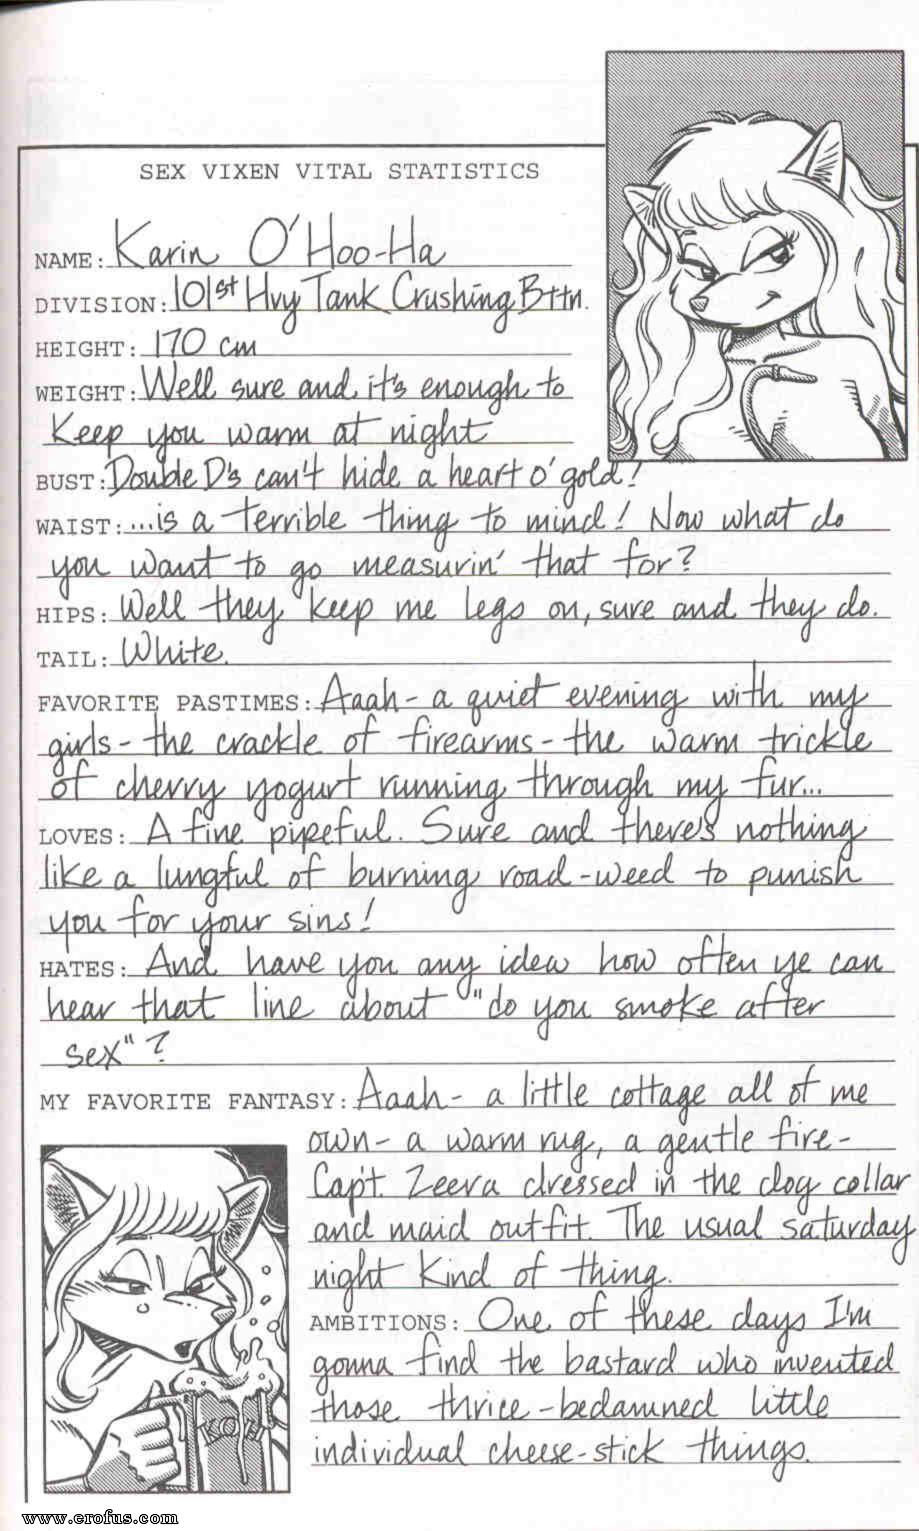 SEX VIXEN VITAL STATISTICS
NAME: Karin O'Hoo-Ha
DIVISION: 101st Hvy Tank Crushing Bttn.
HEIGHT: 170 cm
WEIGHT: Well sure and it's enough to
keep you warm at night
BUST: Double D's can't hide a heart o' gold!
WAIST: ...is a terrible thing to mind! Now what do
you want to go measurin' that for?
HIPS: Well they keep me legs on, sure and they do.
TAIL: White.
FAVORITE PASTIMES: Aaah- a quiet evening with my
girls- the crackle of firearms- the warm trickle
of cherry yogurt running through my fur...
LOVES: A fine pipeful. Sure and there's nothing
like a lungful of burning road-weed to punish
you for your sins!
HATES: And have you any idea how often ye can
hear that line about "do you smoke after
sex"?
MY FAVORITE FANTASY: Aaah- a little cottage all of me
own- a warm rug, a gentle fire-
Capt. Zeera dressed in the dog collar
and maid outfit. The usual saturday
night kind of thing.
AMBITIONS: One of these days I'm
gonna find the bastard who invented
those thrice-bedamned little
individual cheese-stick things.
KOH
www.erofus.com